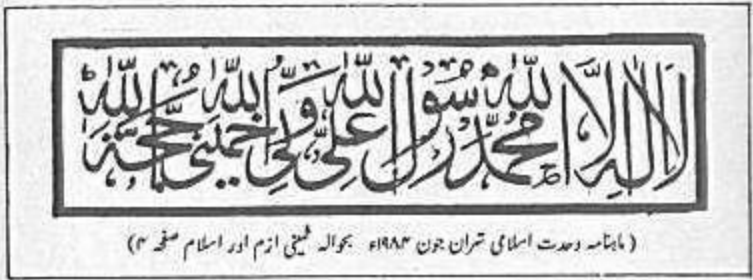 لا اله الا الله محمد رسول الله علی ولی الله خمینی حجة الله
(ماہنامہ وحدت اسلامی تہران جون ۱۹۸۴ء بحوالہ خمینی ازم اور اسلام صفحہ ۴)